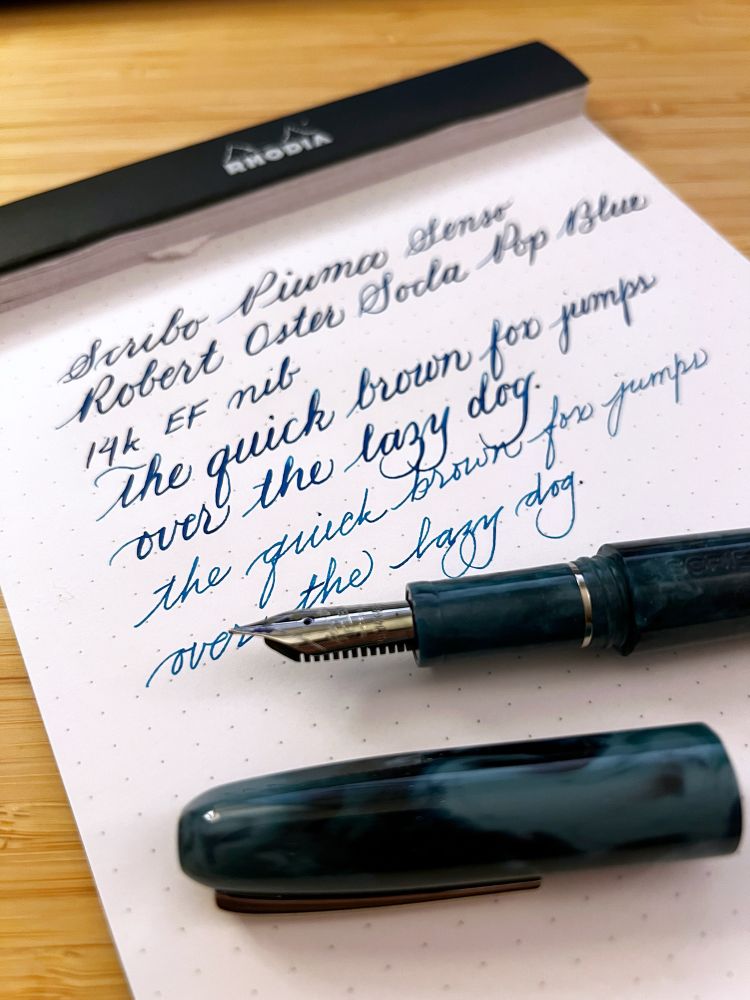 RHODIA
Scribo Piuma Senso
Robert Oster Soda Pop Blue
14k EF nib
the quick brown fox jumps
over the lazy dog.
the quick brown fox jumps
over the lazy dog.